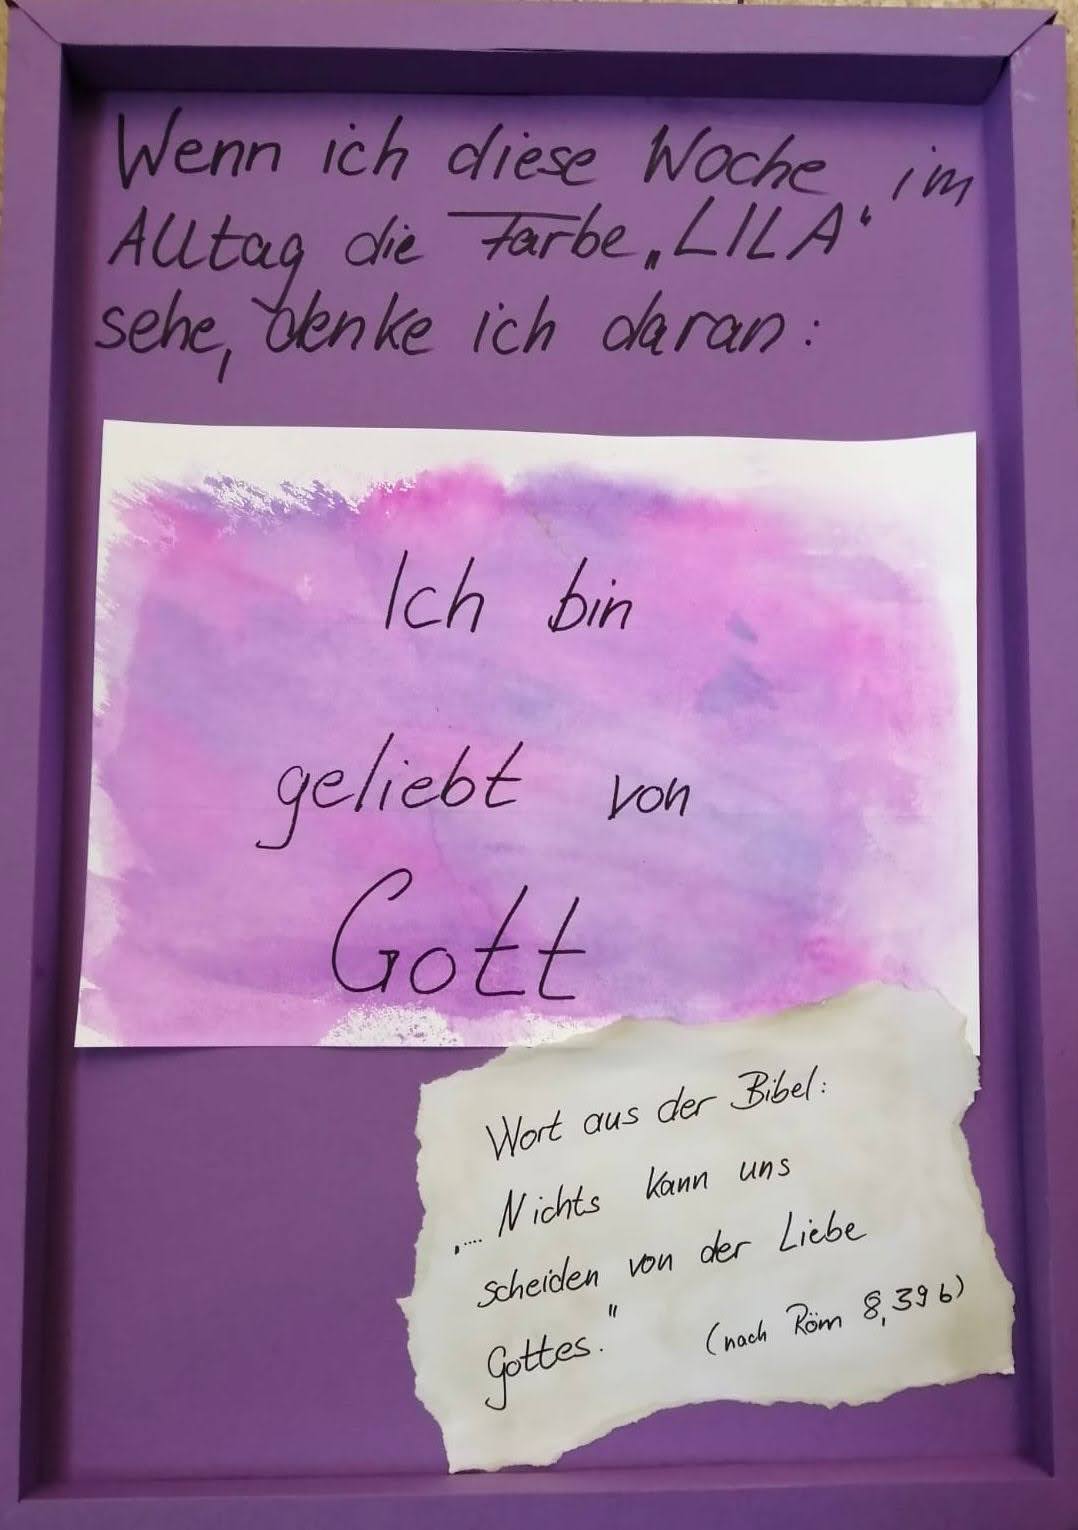 Wenn ich diese Woche im
Alltag die Farbe „LILA“
sehe, denke ich daran:
Ich bin
geliebt von
Gott
Wort aus der Bibel:
„.... Nichts kann uns
scheiden von der Liebe
Gottes."
(nach Röm 8,39b)